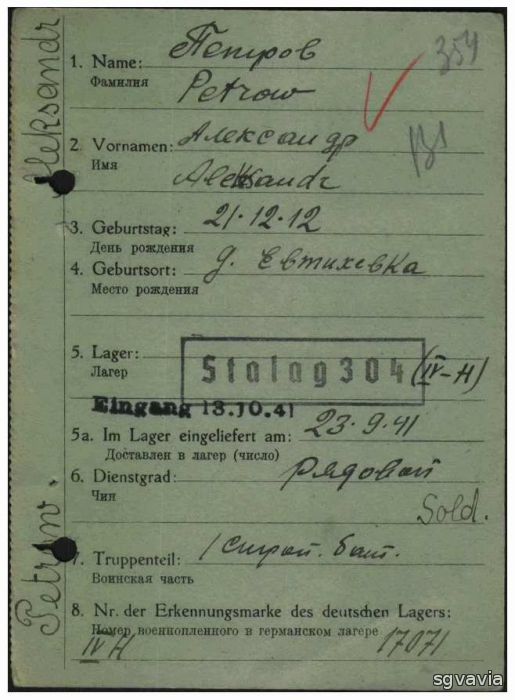 1. Name: Петров
Фамилия Petrow
354
2. Vornamen: Александр
Имя Aleksandr
3. Geburtstag: 21.12.12
День рождения
4. Geburtsort: д. Евтихевка
Место рождения
5. Lager: Stalag 304 (IV-H)
Лагер
Eingang 13.10.41
5a. Im Lager eingeliefert am: 23.9.41
Доставлен в лагер (число)
6. Dienstgrad: рядовой
Чин
Sold.
7. Truppenteil: 1 строй. бат.
Воинская часть
8. Nr. der Erkennungsmarke des deutschen Lagers:
Номер военнопленного в германском лагере
IV H 17071
Petrow. Aleksandr
sgvavia